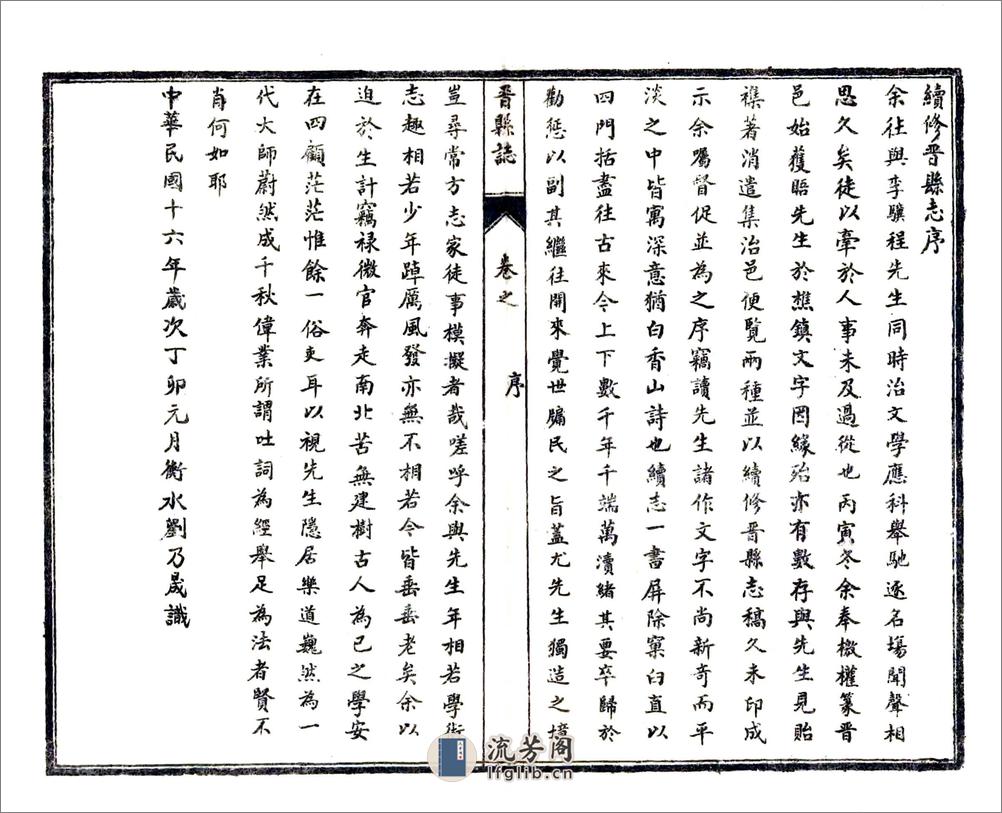 續修晉縣志序
余往與李驥程先生同時治文學應科舉馳逐名場聞聲相
思久矣徒以牽於人事未及過從也丙寅冬余奉檄權篆晉
邑始獲晤先生於樵鎮文字因緣殆亦有數存與先生見貽
襍著消遣集治邑便覽兩種並以續修晉縣志稿久未印成
示余囑督促並為之序竊讀先生諸作文字不尚新奇而平
淡之中皆寓深意猶白香山詩也續志一書屏除窠臼直以
四門括盡往古來今上下數千年千端萬瀆緒其要卒歸於
勸懲以副其繼往開來覺世牖民之旨蓋尤先生獨造之境
晉縣誌
卷之
序
豈尋常方志家徒事模擬者哉嗟乎余與先生年相若學術
志趣相若少年踔厲風發亦無不相若今皆垂垂老矣余以
迫於生計竊祿微官奔走南北苦無建樹古人為己之學安
在四顧茫茫惟餘一俗吏耳以視先生隱居樂道巍然為一
代大師蔚然成千秋偉業所謂吐詞為經舉足為法者賢不
肖何如耶
中華民國十六年歲次丁卯元月衡水劉乃晟識
流芳阁
lfglib.cn